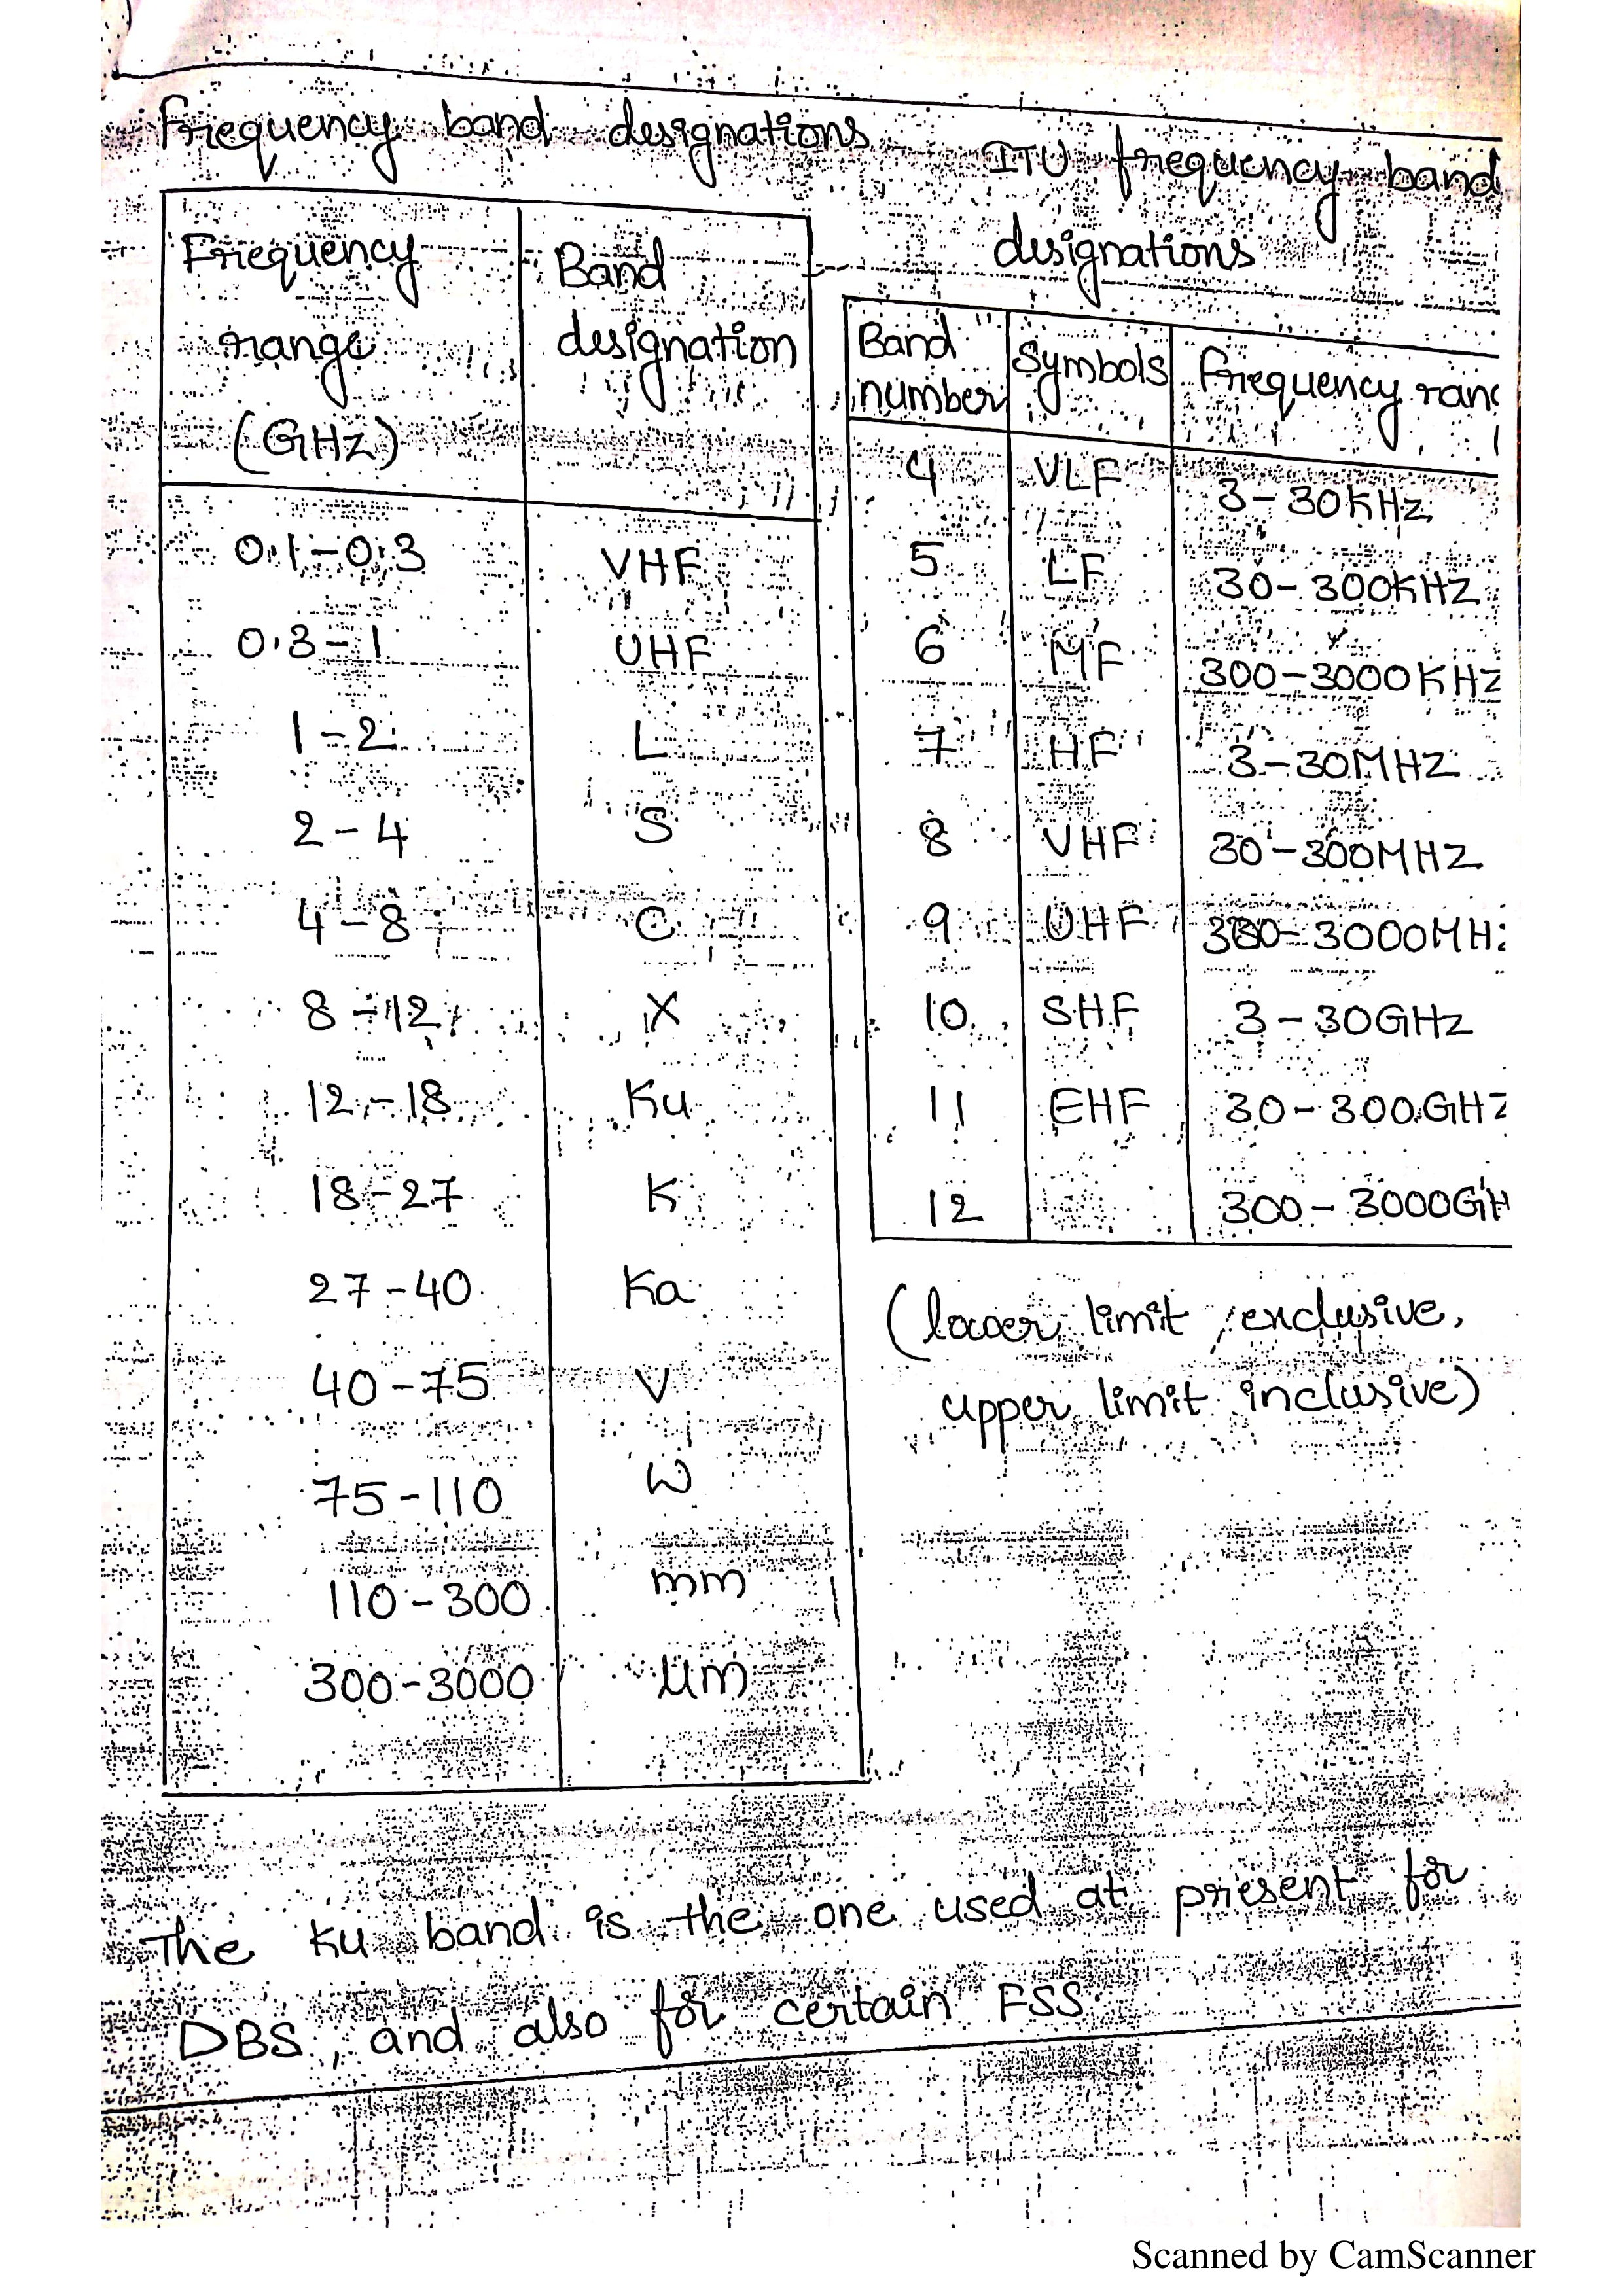 Frequency band designations
Frequency range (GHz) Band designation
0.1-0.3 VHF
0.3-1 UHF
1-2 L
2-4 S
4-8 C
8-12 X
12-18 Ku
18-27 K
27-40 Ka
40-75 V
75-110 W
110-300 mm
300-3000 μm
ITU frequency band
designations
Band number Symbols Frequency ran
4 VLF 3-30KHz
5 LF 30-300KHZ
6 MF 300-3000KHZ
7 HF 3-30MHZ
8 VHF 30-300MHZ
9 UHF 300-3000MH
10 SHF 3-30GHz
11 EHF 30-300GHZ
12 300-3000GH
(lower limit exclusive,
upper limit inclusive)
The Ku band is the one used at present for
DBS, and also for certain FSS.
Scanned by CamScanner